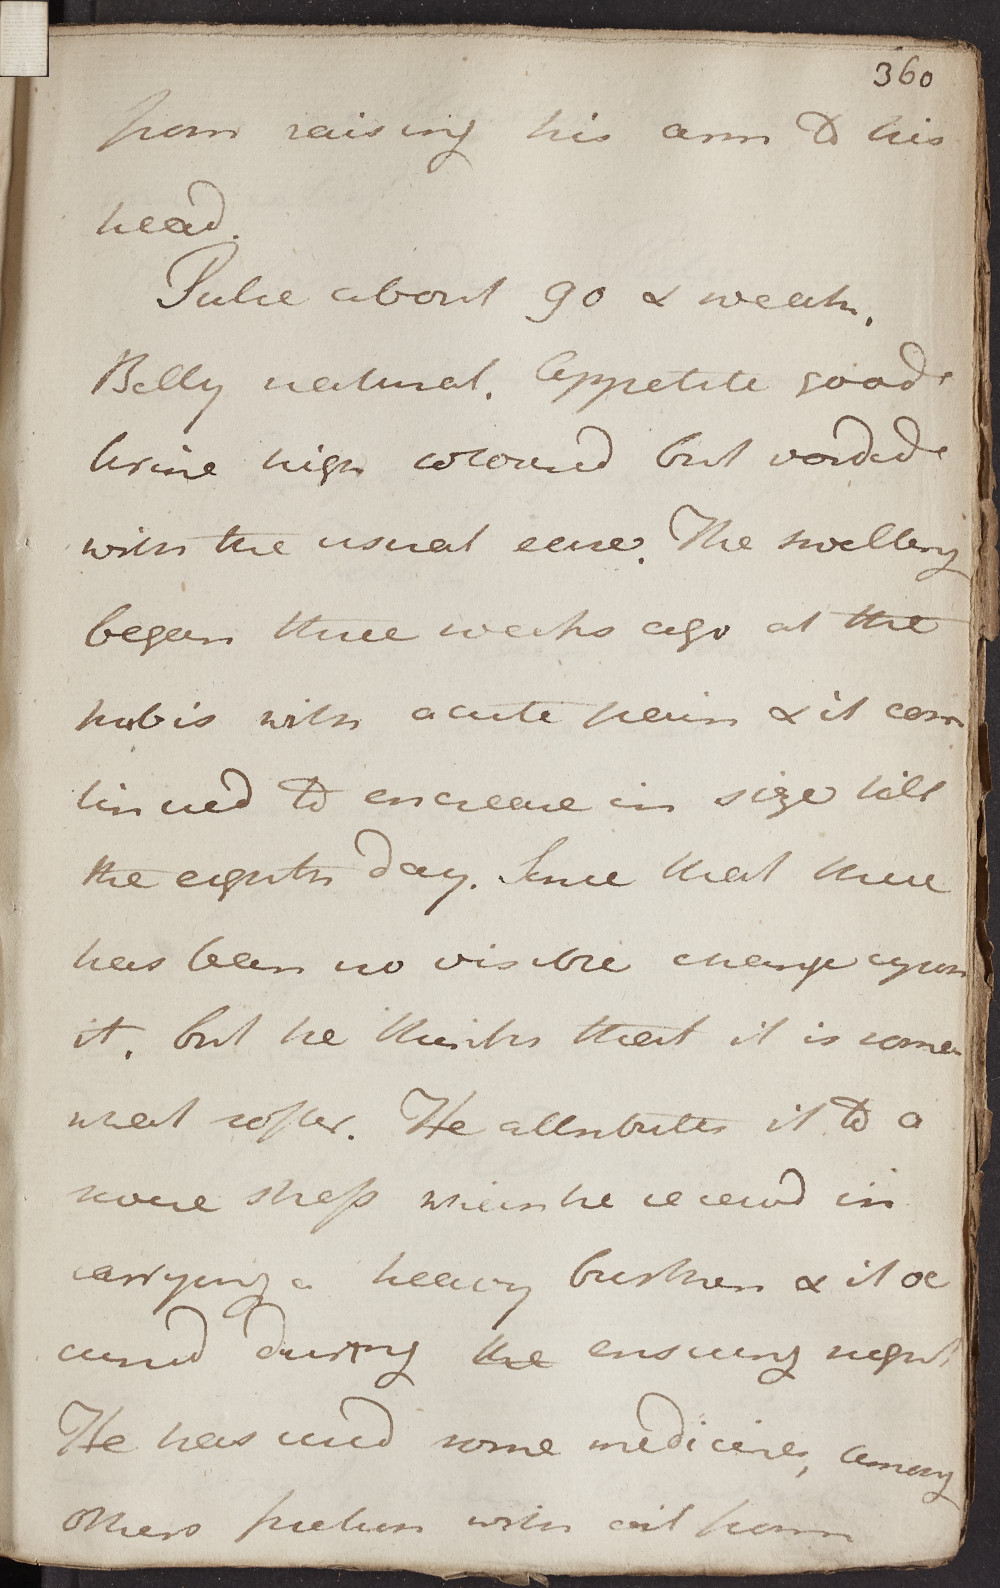 360
from raising his arm to his
head.
Pulse about 90 & weak.
Belly natural. Appetite good.
Urine high coloured but voided
with the usual ease. The swelling
began three weeks ago at the
pubis with acute pain & it con
tinued to encrease in size till
the eighth day. Since that there
has been no visible change upon
it, but he thinks that it is some
what softer. He attributes it to a
which he received in
carrying a heavy burthen & it oc
cured during the ensuing night
He has used some medicines, among
others friction with oil from